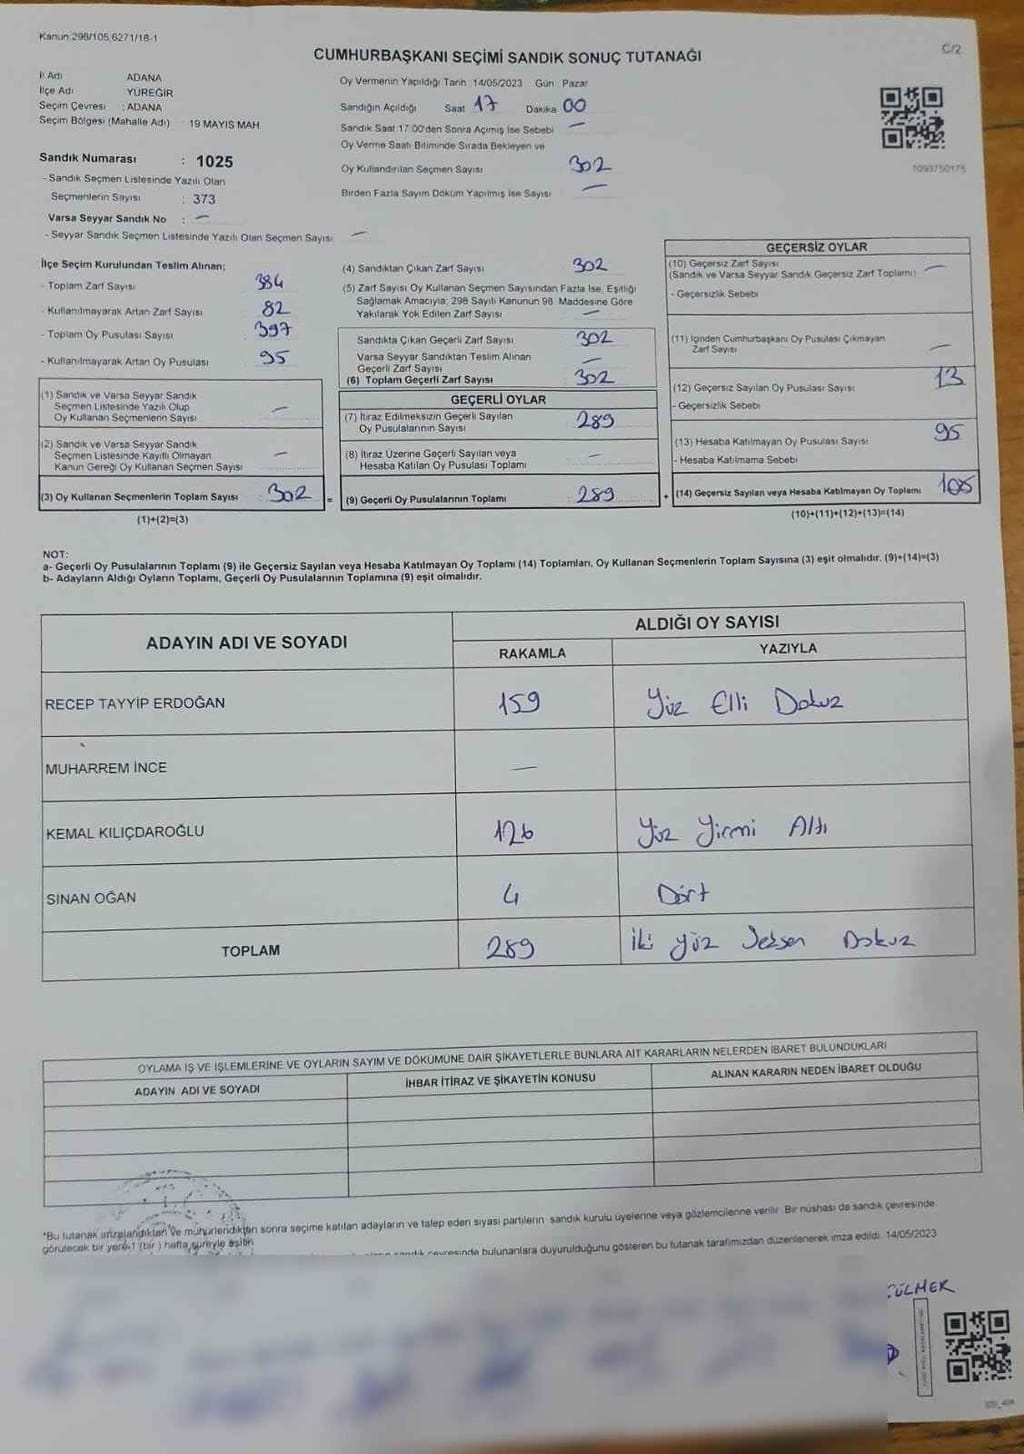 Kanun:298/105,6271/18-1
C/2
CUMHURBAŞKANI SEÇİMİ SANDIK SONUÇ TUTANAĞI
İl Adı ADANA
İlçe Adı YÜREĞİR
Seçim Çevresi : ADANA
Seçim Bölgesi (Mahalle Adı) 19 MAYIS MAH.
Sandık Numarası : 1025
- Sandık Seçmen Listesinde Yazılı Olan
Seçmenlerin Sayısı : 373
Varsa Seyyar Sandık No : —
- Seyyar Sandık Seçmen Listesinde Yazılı Olan Seçmen Sayısı —
Oy Vermenin Yapıldığı Tarih 14/05/2023 Gün Pazar
Sandığın Açıldığı Saat 17 Dakika 00
Sandık Saat 17:00'den Sonra Açımış İse Sebebi —
Oy Verme Saati Bitiminde Sırada Bekleyen ve
Oy Kullandırılan Seçmen Sayısı 302
Birden Fazla Sayım Döküm Yapılmış İse Sayısı —
1093750175
İlçe Seçim Kurulundan Teslim Alınan;
- Toplam Zarf Sayısı 384
- Kullanılmayarak Artan Zarf Sayısı 82
- Toplam Oy Pusulası Sayısı 397
- Kullanılmayarak Artan Oy Pusulası 95
(1) Sandık ve Varsa Seyyar Sandık
Seçmen Listesinde Yazılı Olup
Oy Kullanan Seçmenlerin Sayısı —
(2) Sandık ve Varsa Seyyar Sandık
Seçmen Listesinde Kayıtlı Olmayan
Kanun Gereği Oy Kullanan Seçmen Sayısı —
(3) Oy Kullanan Seçmenlerin Toplam Sayısı : 302 =
(1)+(2)=(3)
(4) Sandıktan Çıkan Zarf Sayısı 302
(5) Zarf Sayısı Oy Kullanan Seçmen Sayısından Fazla İse, Eşitliği
Sağlamak Amacıyla; 298 Sayılı Kanunun 98. Maddesine Göre
Yakılarak Yok Edilen Zarf Sayısı —
Sandıkta Çıkan Geçerli Zarf Sayısı 302
Varsa Seyyar Sandıktan Teslim Alınan
Geçerli Zarf Sayısı —
(6) Toplam Geçerli Zarf Sayısı 302
GEÇERLİ OYLAR
(7) İtiraz Edilmeksizin Geçerli Sayılan
Oy Pusulalarının Sayısı 289
(8) İtiraz Üzerine Geçerli Sayılan veya
Hesaba Katılan Oy Pusulası Toplamı —
(9) Geçerli Oy Pusulalarının Toplamı : 289 +
GEÇERSİZ OYLAR
(10) Geçersiz Zarf Sayısı
(Sandık ve Varsa Seyyar Sandık Geçersiz Zarf Toplamı) —
- Geçersizlik Sebebi
(11) İçinden Cumhurbaşkanı Oy Pusulası Çıkmayan
Zarf Sayısı —
(12) Geçersiz Sayılan Oy Pusulası Sayısı 13
- Geçersizlik Sebebi
(13) Hesaba Katılmayan Oy Pusulası Sayısı 95
- Hesaba Katılmama Sebebi
(14) Geçersiz Sayılan veya Hesaba Katılmayan Oy Toplamı 108
(10)+(11)+(12)+(13)=(14)
NOT:
a- Geçerli Oy Pusulalarının Toplamı (9) ile Geçersiz Sayılan veya Hesaba Katılmayan Oy Toplamı (14) Toplamları, Oy Kullanan Seçmenlerin Toplam Sayısına (3) eşit olmalıdır. (9)+(14)=(3)
b- Adayların Aldığı Oyların Toplamı, Geçerli Oy Pusulalarının Toplamına (9) eşit olmalıdır.
ADAYIN ADI VE SOYADI
ALDIĞI OY SAYISI
RAKAMLA YAZIYLA
RECEP TAYYİP ERDOĞAN 159 Yüz Elli Dokuz
MUHARREM İNCE —
KEMAL KILIÇDAROĞLU 126 Yüz Yirmi Altı
SİNAN OĞAN 4 Dört
TOPLAM 289 İki Yüz Seksen Dokuz
OYLAMA İŞ VE İŞLEMLERİNE VE OYLARIN SAYIM VE DÖKÜMÜNE DAİR ŞİKAYETLERLE BUNLARA AİT KARARLARIN NELERDEN İBARET BULUNDUKLARI
ADAYIN ADI VE SOYADI İHBAR İTİRAZ VE ŞİKAYETİN KONUSU ALINAN KARARIN NEDEN İBARET OLDUĞU
*Bu tutanak imzalandıktan ve mühürlendikten sonra seçime katılan adayların ve talep eden siyasi partilerin sandık kurulu üyelerine veya gözlemcilerine verilir. Bir nüshası da sandık çevresinde
görülecek bir yere 1 (bir ) hafta süreyle asılır.
sandık çevresinde bulunanlara duyurulduğunu gösteren bu tutanak tarafımızdan düzenlenerek imza edildi. 14/05/2023
GÜLMER